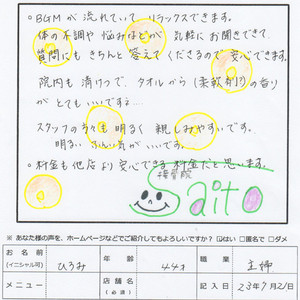 ○BGMが流れていて リラックスできます。
体の不調や悩みなどが 気軽にお聞きできて、
質問にも きちんと 答えて くださるので 安心できます。
院内も 清けつで、タオルから(柔軟剤?)の香り
が とても いいです…
スタッフの方々も 明るく 親しみやすいです。
明るい ふんい気が いいです。
○料金も 他店より 安心できる 料金だと 思います。
接骨院
Saito
※あなた様の声を、ホームページなどでご紹介してもよろしいですか?☑はい □匿名で □ダメ
お名前(イニシャル可) ひろみ 年齢 44才 職業 主婦
メニュー 店舗名(必須) 記入日 23年9月2日